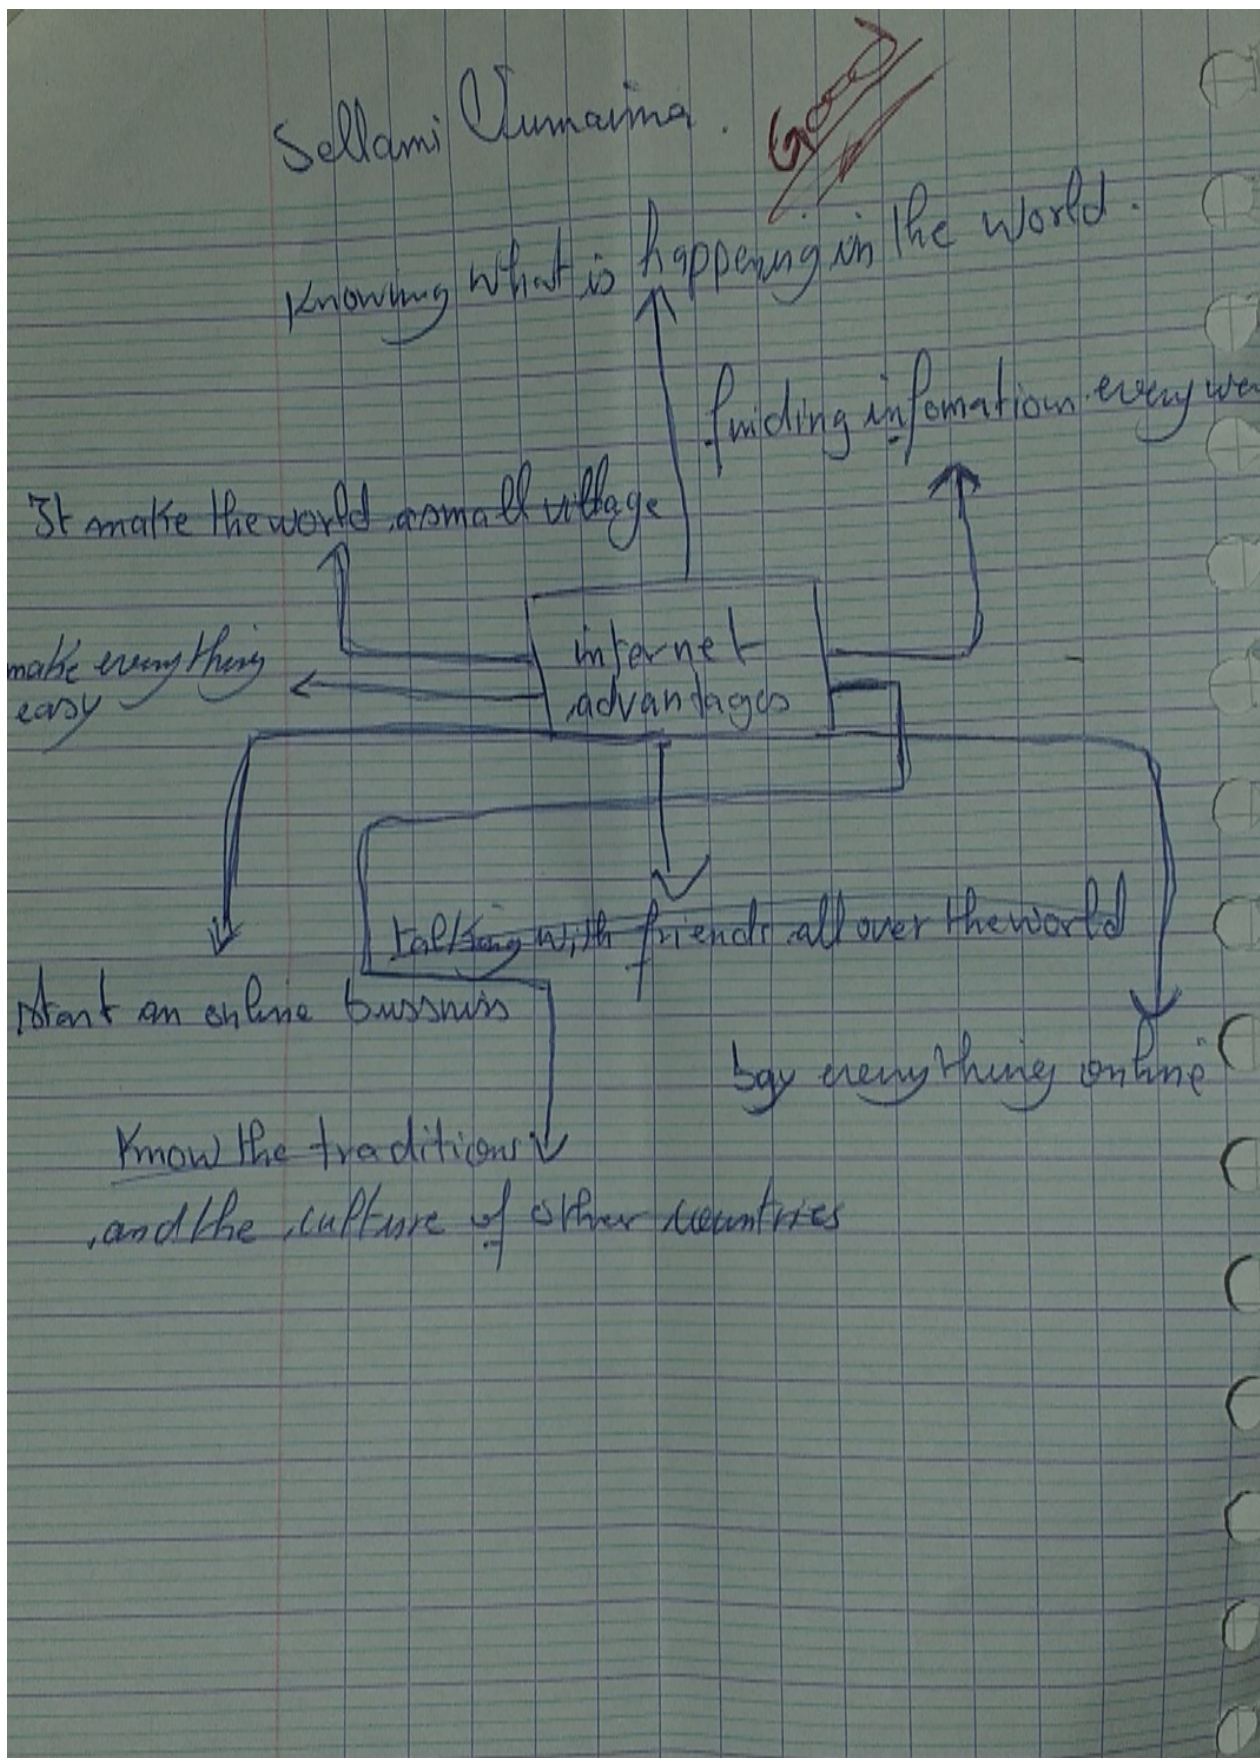 Sellami Oumaima.
Good
Knowing what is happening in the world.
finding infomation every we
It make the world a small village
internet
advantages
make everything
easy
talking with friends all over the world
start an online bussniss
bay everything online
Know the traditions
and the culture of other countries